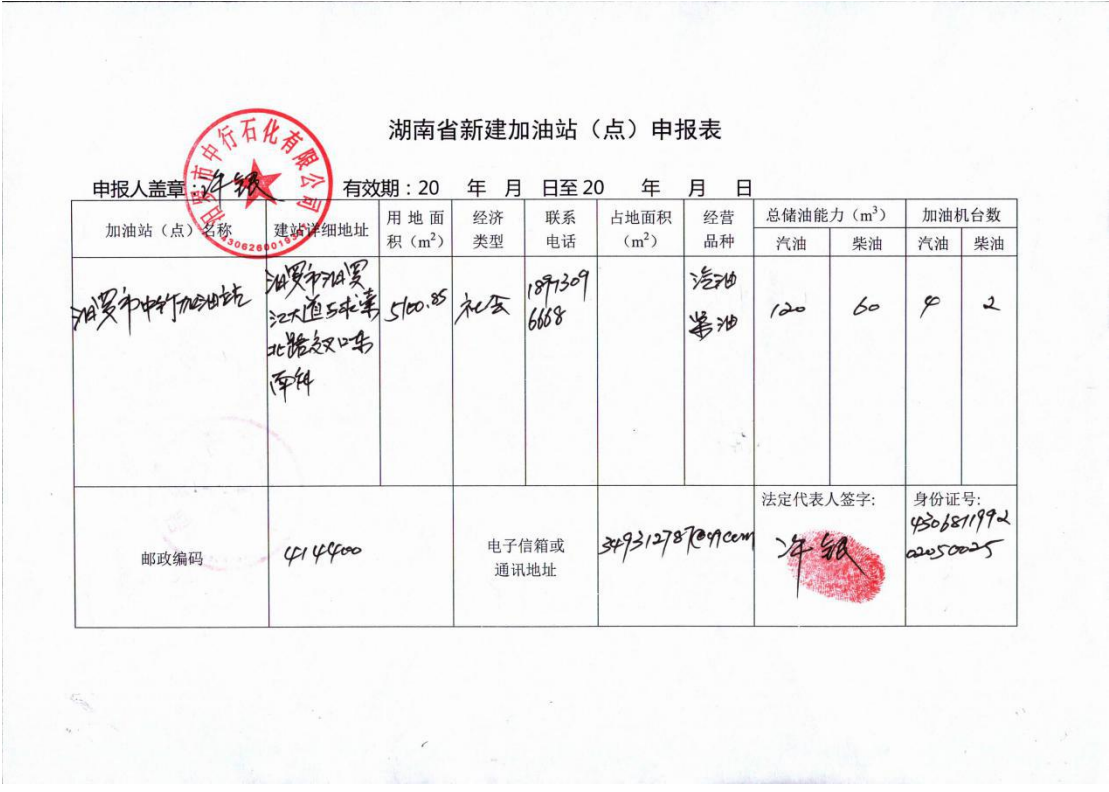 湖南省新建加油站（点）申报表
汨罗市中行石化有限公司
申报人盖章：许银 有效期：20 年 月 日至20 年 月 日
加油站（点）名称
建站详细地址
用地面
积（m²）
经济
类型
联系
电话
占地面积
（m²）
经营
品种
总储油能力（m³）
汽油 柴油
加油机台数
汽油 柴油
汨罗市中行加油站
汨罗市汨罗
江大道与求索
北路交叉口东
南斜
5100.85
社会
1897309
6668
汽油
柴油
120
60
4
2
邮政编码
414400
电子信箱或
通讯地址
349312787@qq.com
法定代表人签字:
许银
身份证号:
4306811992
02050025